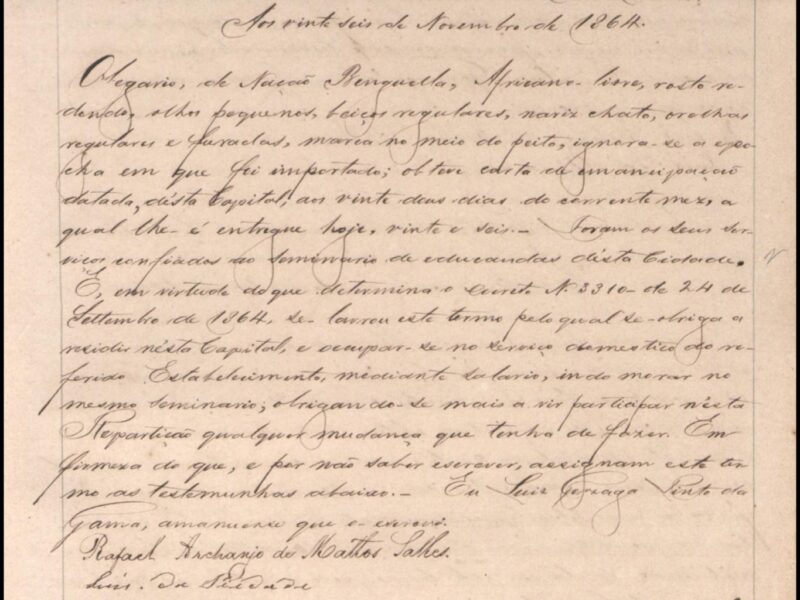 Aos vinte seis de Novembro de 1864.
Olegario, de Nação Benguella, Africano livre, rosto re-
dondo, olhos pequenos, beiços regulares, nariz chato, orelhas
regulares e furadas, marca no meio do peito, ignora-se a epo-
cha em que foi importado; obteve carta de emancipação
datada, désta Capital, aos vinte dous dias do corrente mez, a
qual lhe é entregue hoje, vinte e seis.— Foram os seus ser-
viços confiados ao seminario de educandas désta Cidade.
E, em virtude do que determina o Decreto N. 3310 de 24 de
Settembro de 1864, se lavrou este termo pelo qual se obriga a
residir nésta Capital, e occupar-se no serviço domestico do re-
ferido Estabelecimento, mediante salario, indo morar no
mesmo seminario; obrigando-se mais a vir participar nésta
Repartição qualquer mudança que tenha de fazer. Em
firmeza do que, e por não saber escrever, assignam este ter-
mo as testemunhas abaixo.— Eu Luiz Gonzaga Pinto da
Gama, amanuense que o escrevi.
Rafael Archanjo de Mattos Salles.
Luis da Piedade